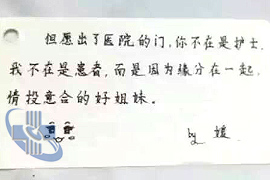 但愿出了医院的门，你不在是护士，
我不在是患者，而是因为缘分在一起，
情投意合的好姐妹。
by 媛